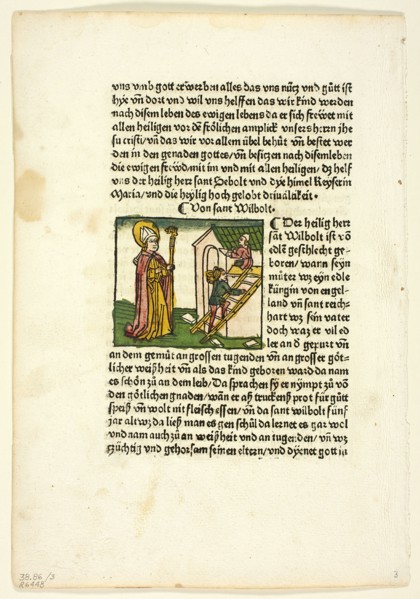 vns vmb gott erwerben alles das vns nütz vnd gůtt ist
hye vñ dort vnd wil vns helffen das wir kind werden
nach disem leben des ewigen lebens da er sich frewet mit
allen heiligen vor dē frölichen amplick vnsers herrn jhe
su cristi/vñ das wir vor allem übel behůt vñ bestet wer
den in den genaden gottes/vñ besiczen nach disem leben
die ewigen frewd/mit im vnd mit allen heiligen/dz helf
vns der heilig herr sant Sebolt vnd dye himel Keyserin
Maria/vnd die heylig hoch gelobt driuältikeit.
¶ Von sant Wilbolt.
¶ Der heilig herr
sāt Wilbolt ist vō
edlē geschlecht ge-
boren/wann seyn
můter wz eyn edle
küngin von engel-
land vñ sant reich-
hart wz sein vater
doch waz er vil ed
ler an d gepurt vñ
an dem gemüt an grossen tugenden vñ an grosser göt-
licher weißheit vñ als das kind geboren ward da nam
es schön zů an dem leib/Da sprachen sy er nympt zů vō
den götlichen gnaden/wān er aß truckenß prot für gůtt
speiß vñ wolt nit fleisch essen/vñ da sant wilbolt fünf
jar alt wz da ließ man es gen schůl da lernet es gar wol
vnd nam auch zů an weißheit vnd an tugenden/vñ wz
züchtig vnd gehorsam seinen eltern/vnd dyenet gott in
38.86/3
3